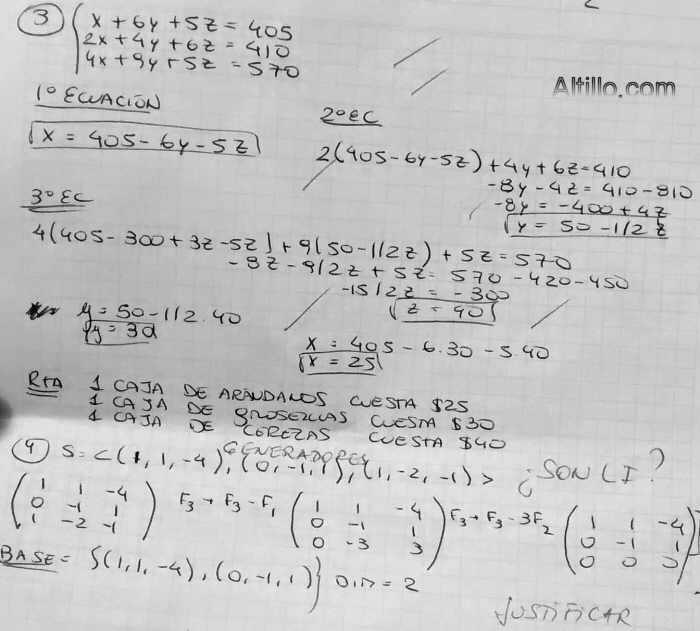 3
x + 6y + 5z = 405
2x + 4y + 6z = 410
4x + 9y + 5z = 570
Altillo.com
1° ECUACIÓN
x = 405 - 6y - 5z
2° EC
2(405 - 6y - 5z) + 4y + 6z = 410
-8y - 4z = 410 - 810
-8y = -400 + 4z
y = 50 - 1/2 z
3° EC
4(405 - 300 + 3z - 5z) + 9(50 - 1/2 z) + 5z = 570
-8z - 9/2 z + 5z = 570 - 420 - 450
-15/2 z = -300
z = 40
y = 50 - 1/2 . 40
y = 30
x = 405 - 6.30 - 5.40
x = 25
RTA 1 CAJA DE ARÁNDANOS CUESTA $25
1 CAJA DE GROSELLAS CUESTA $30
1 CAJA DE CEREZAS CUESTA $40
GENERADORES
4 S = <(1, 1, -4), (0, -1, 1), (1, -2, -1)> ¿SON LI?
1 1 -4
0 -1 1
1 -2 -1
F3 → F3 - F1
1 1 -4
0 -1 1
0 -3 3
F3 → F3 - 3F2
1 1 -4
0 -1 1
0 0 0
BASE = {(1, 1, -4), (0, -1, 1)} DIM = 2
JUSTIFICAR